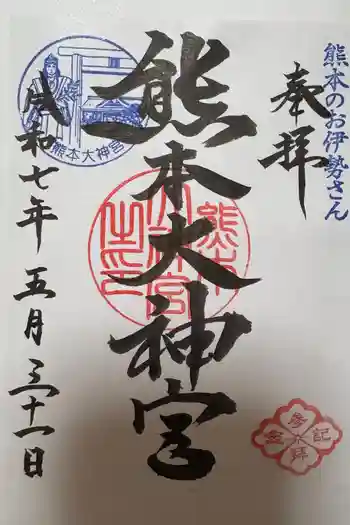 熊本のお伊勢さん
奉拝
熊本大神宮
熊本大神宮之印
熊本大神宮
令和七年五月三十一日
参拝記念